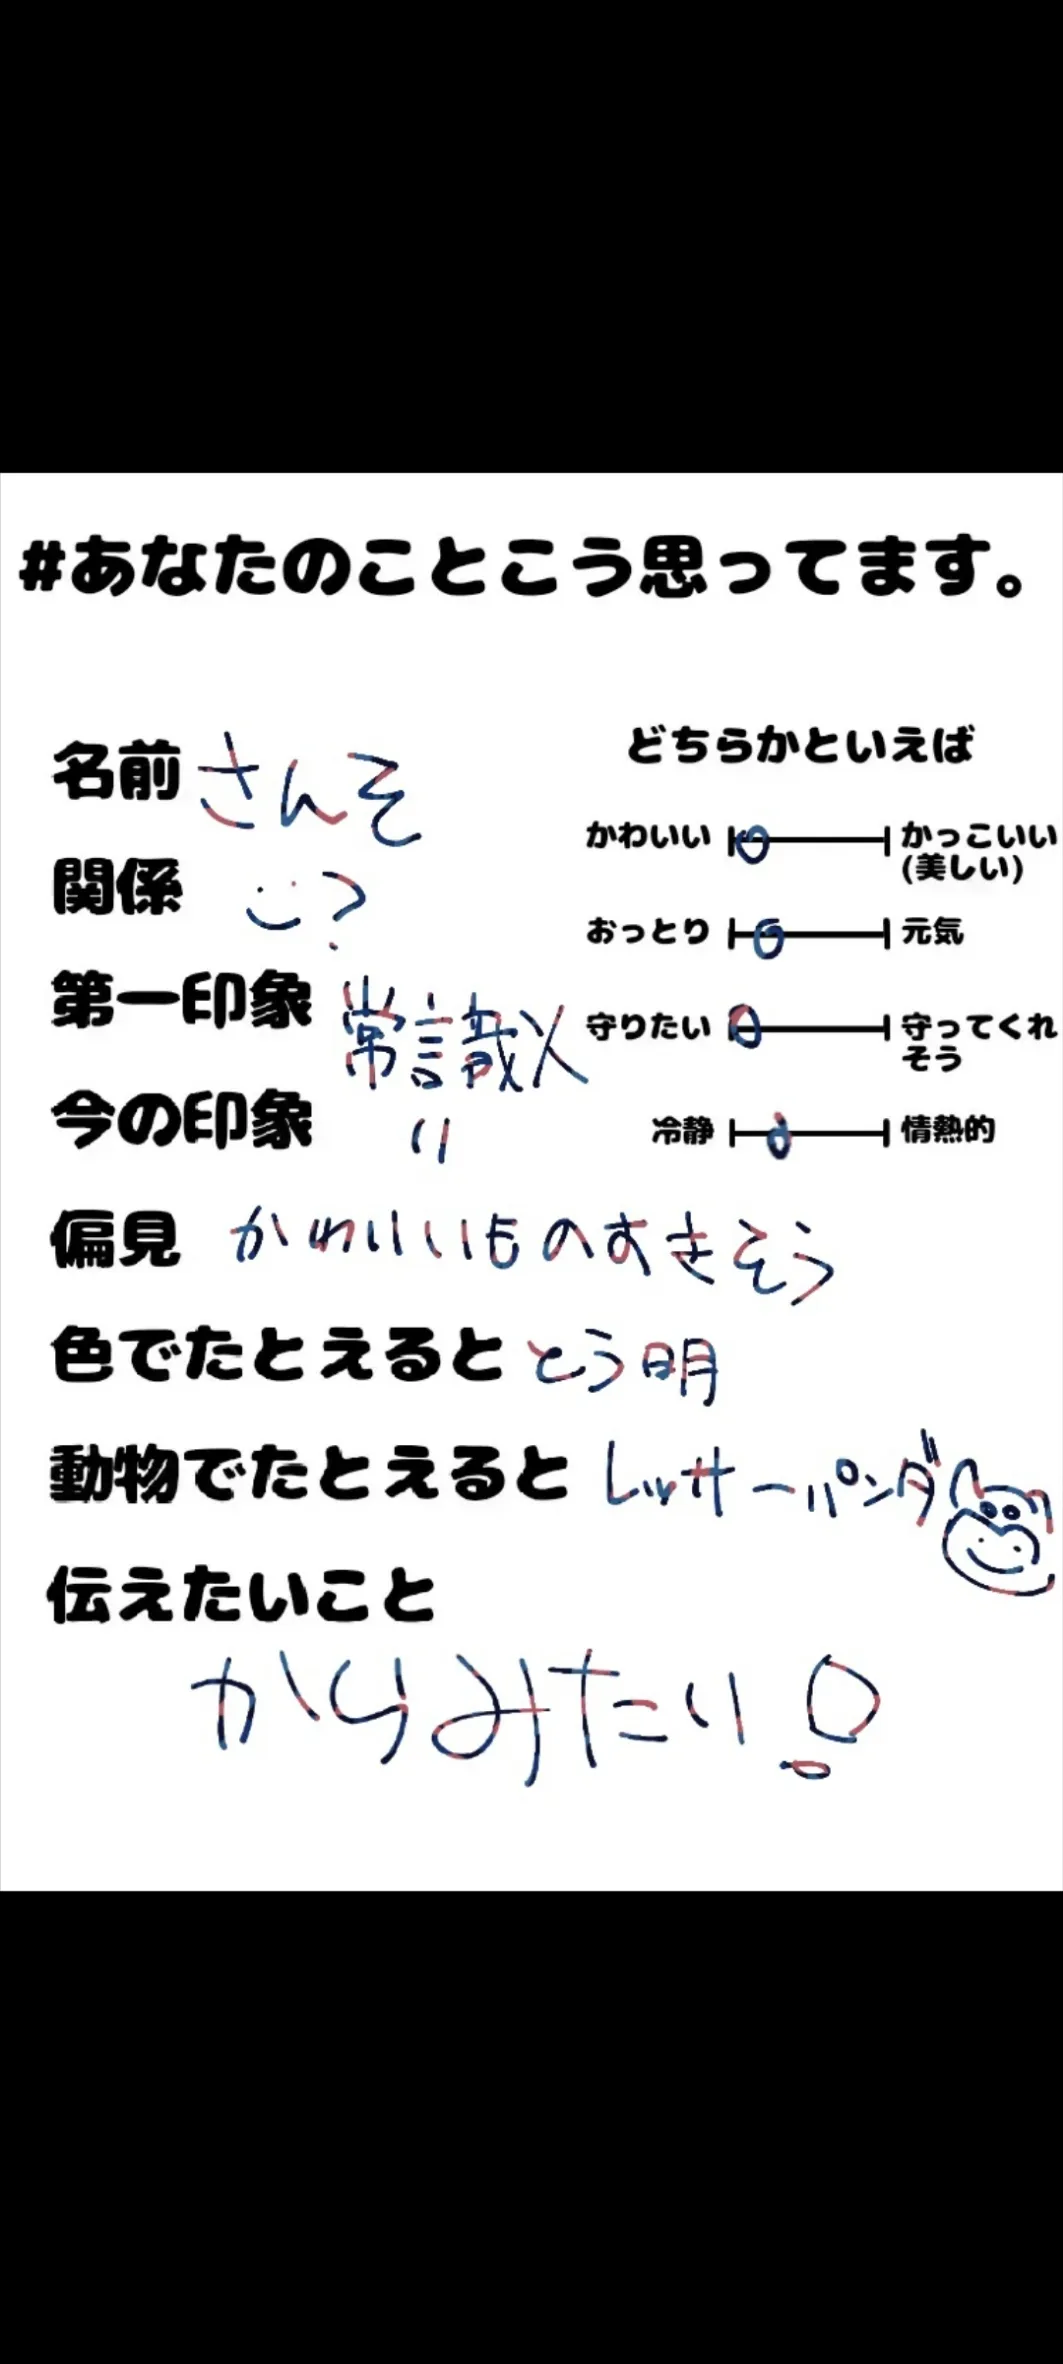 #あなたのことこう思ってます。
名前 さんそ
関係 ?
第一印象 常識人
今の印象 〃
偏見 かわいいものすきそう
色でたとえると とう明
動物でたとえると レッサーパンダ
伝えたいこと
からみたい!
どちらかといえば
かわいい かっこいい
(美しい)
おっとり 元気
守りたい 守ってくれ
そう
冷静 情熱的